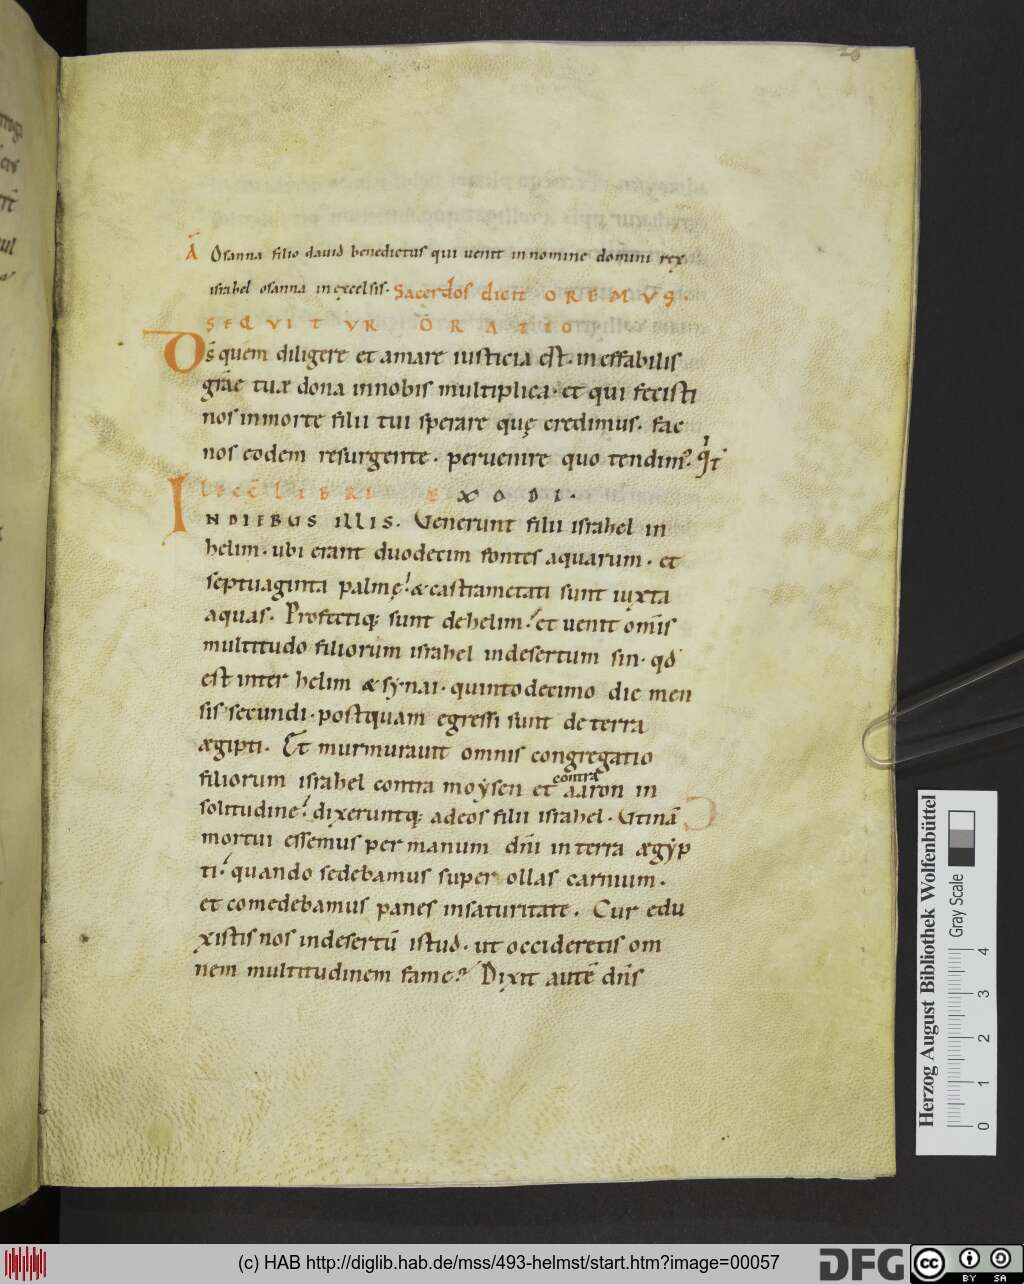 26
Ā Osanna filio dauid benedictus qui uenit in nomine domini rex
israhel osanna in excelsis. Sacerdos dicit OREMVS.
SEQVITVR ORATIO
Dꝰ quem diligere et amare iusticia est. ineffabilis
grāe tuæ dona in nobis multiplica. et qui fecisti
nos in morte filii tui sperare quę credimus. fac
nos eodem resurgente. peruenire quo tendimꝰ. q̇t
LECC LIBRI EXODI.
INDIEBUS ILLIS. Uenerunt filii israhel in
helim. ubi erant duodecim fontes aquarum. et
septuaginta palmę. & castrametati sunt iuxta
aquas. Profectiq; sunt dehelim. et uenit om̄is
multitudo filiorum israhel indesertum sin. qđ
est inter helim & sẏnai. quintodecimo die men
sis secundi. postquam egressi sunt deterra
ægipti. Et murmurauit omnis congregatio
filiorum israhel contra moẏsen et contra aaron in
solitudine. dixeruntq; adeos filii israhel. Utinā
mortui essemus per manum dn̄i in terra ægẏp
ti. quando sedebamus super ollas carnium.
et comedebamus panes insaturitate. Cur edu
xistis nos indesertū istud. ut occideretis om
nem multitudinem fame? Dixit autē dn̄s
Herzog August Bibliothek Wolfenbüttel
Gray Scale
0 1 2 3 4
(c) HAB http://diglib.hab.de/mss/493-helmst/start.htm?image=00057
DFG
cc BY SA